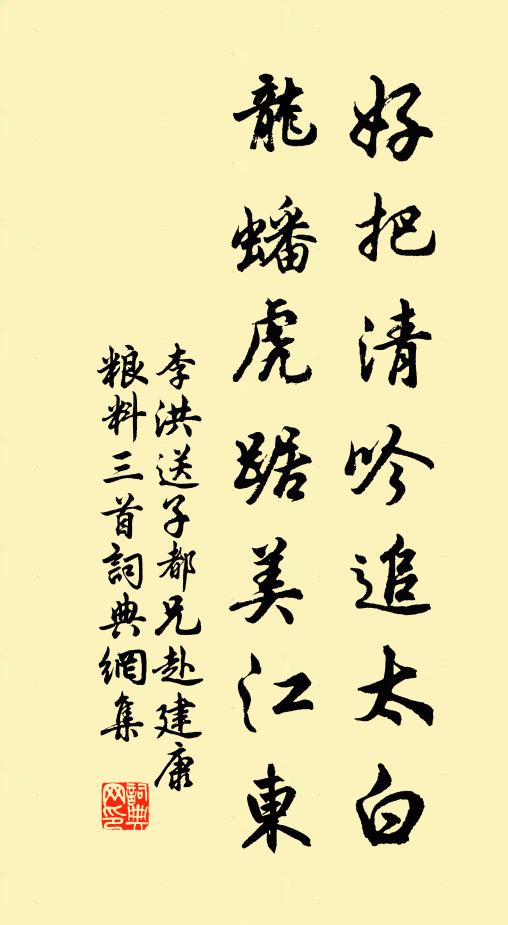 好把清吟追太白
龍蟠虎踞美江東
李洪送子都兄赴建康
粮料三首詞典網集
詞典
网印